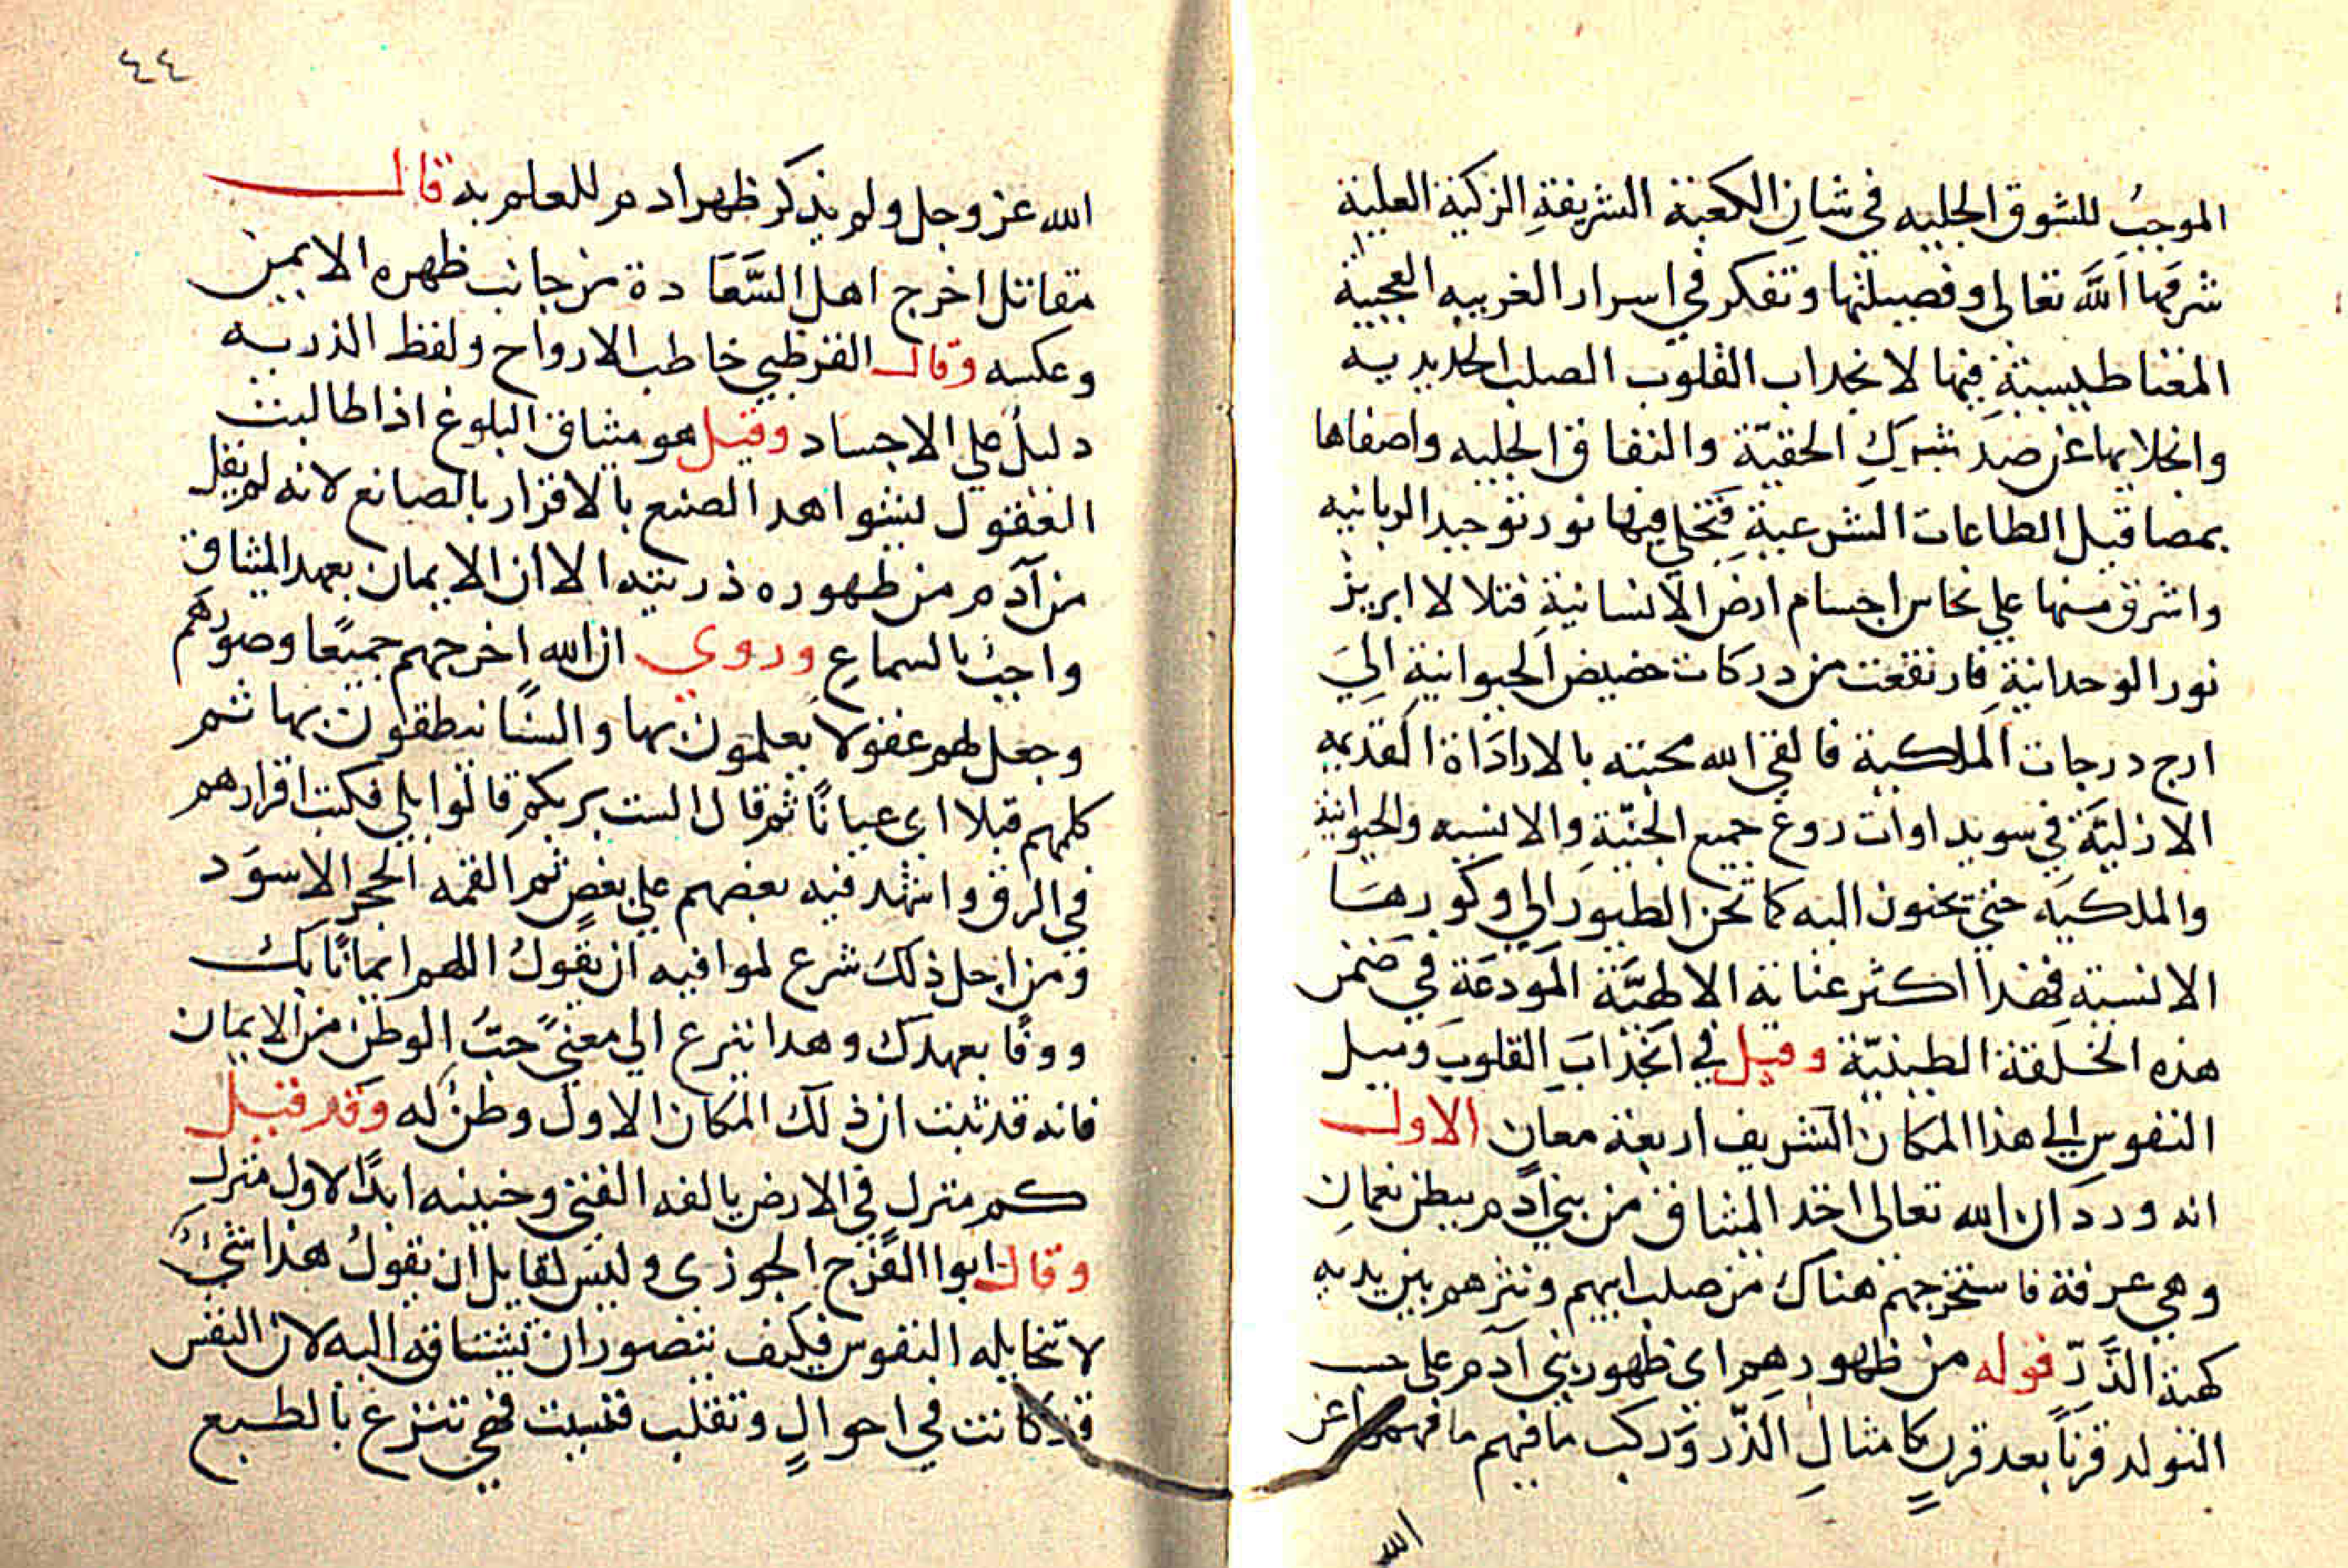 الموجبُ للشوق الجليه في شانِ الكعبة الشريفةِ الزكية العلية
شرفها اللَّه تعالى وفضيلتها وتفكر في اسرار الغريبه العجيبة
المغناطيسيةِ فيها لانجذاب القلوب الصلب الحديديه
وانجلايها عن صد شركِ الحقيّة والنفاق الجليه واصفاها
بمصاقيل الطاعات الشرعيةِ فتجلي فيها نور توحيد الربانيه
واشرق منها علي نحاس اجسام ارض الانسانيةِ فتلالا ابريز
نور الوحدانيةِ فارتفعت من دركات حضيض الحيوانية الي
ارج درجات الملكية فالقي الله محبته بالاراداة القديمه
الازليَّة في سويداوات روع جميع الجنّيّةِ والانسيه والحيوانية
والملكيه حتي يحنون اليه كما تحن الطيور الي وكورها
الانسيةِ فهذا اكثر عناية الالهيَّة المودعَة في ضمن
هذه الخلقة الطينيّة وقيل في انجذابَ القلوبِ وميل
النفوسِ الي هذا المكان الشريف اربعة معانٍ الاول
انه ورد ان الله تعالى اخد الميثاق من بني آدم ببطن نعمان
وهي عرفة فاستخرجهم هناك من صلب ابيهم ونثرهم بين يديه
كهية الذَّرّ قوله من ظهورهم اي ظهور بني آدم على حسب
التولد قرناً بعد قرنٍ كامثالِ الذّر وركب ما فيهم ما فهموا عن
الله
٤٤
الله عز وجل ولم يذكر ظهر ادم للعلم به قال
مقاتل اخرج اهل السَّعَادة من جانب ظهره الايمن
وعكسه وقال القرظيي خاطب الارواح ولفظ الذريه
دليلٌ علي الاجساد وقيل هو ميثاق البلوغ اذا طالبت
العقول بشواهد الصنع بالاقرار بالصانع لانه لم يقل
من آدم من ظهوره ذريته الا ان الايمان بعهد الميثاق
واجبٌ بالسماع وروي ان الله اخرجهم جميعًا وصورهم
وجعل لهم عقولا يعلمون بها والسنًا ينطقون بها ثم
كلمهم قبلا اي عيانًا ثم قال الست بربكم قالوا بلي فكتب اقرارهم
في الرق واشهد فيه بعضهم علي بعضٍ ثم القمه الحجر الاسود
ومن اجل ذلك شرع لموافيه ان يقولُ اللهم ايمانًا بك
ووفًا بعهدك وهدا ينزع الي معنيً حبُّ الوطن من الايمان
فانه قد ثبت ان ذلك المكان الاول وطنٌ له وقد قيل
كم منزل في الارض يالفه الفتي وحنينه ابدًا لاول منزل
وقال ابوا الفرج الجوزي وليس لقايل ان يقولُ هذا شيٌ
لا تخايله النفوس فكيف يتصور ان تشتاقه اليه لان النفس
قد كانت في احوالٍ وتقلب فنسيت فهي تنزع بالطبع